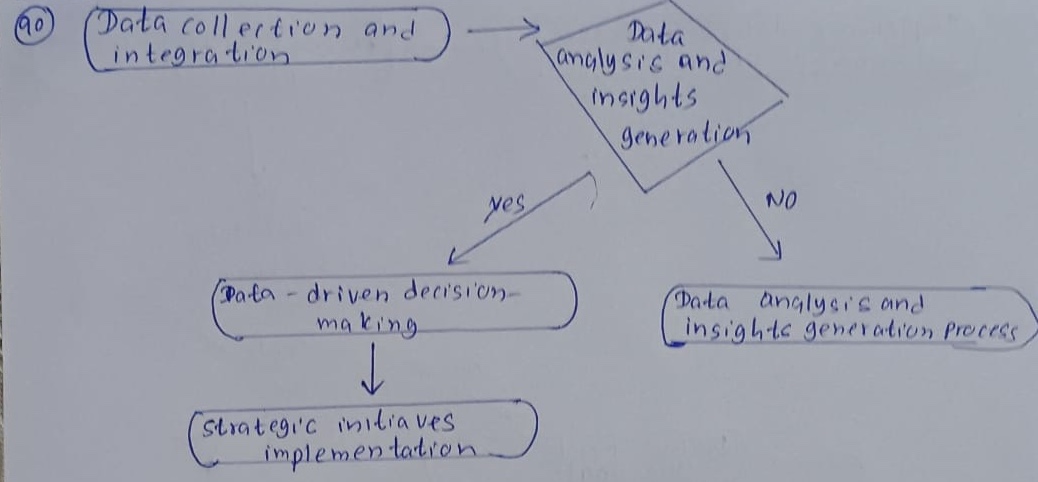 90
Data collection and
integration
Data
analysis and
insights
generation
yes
NO
Data-driven decision-
making
Data analysis and
insights generation process
strategic initiaves
implementation